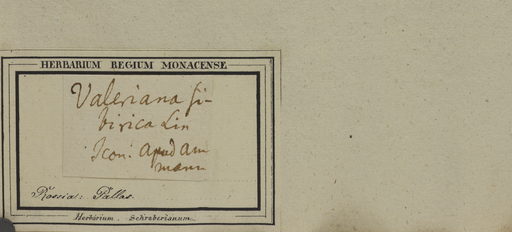 HERBARIUM REGIUM MONACENSE
Valeriana si-
birica Lin
Icon: apud Am
mann
Rossia: Pallas.
Herbarium Schreberianum.